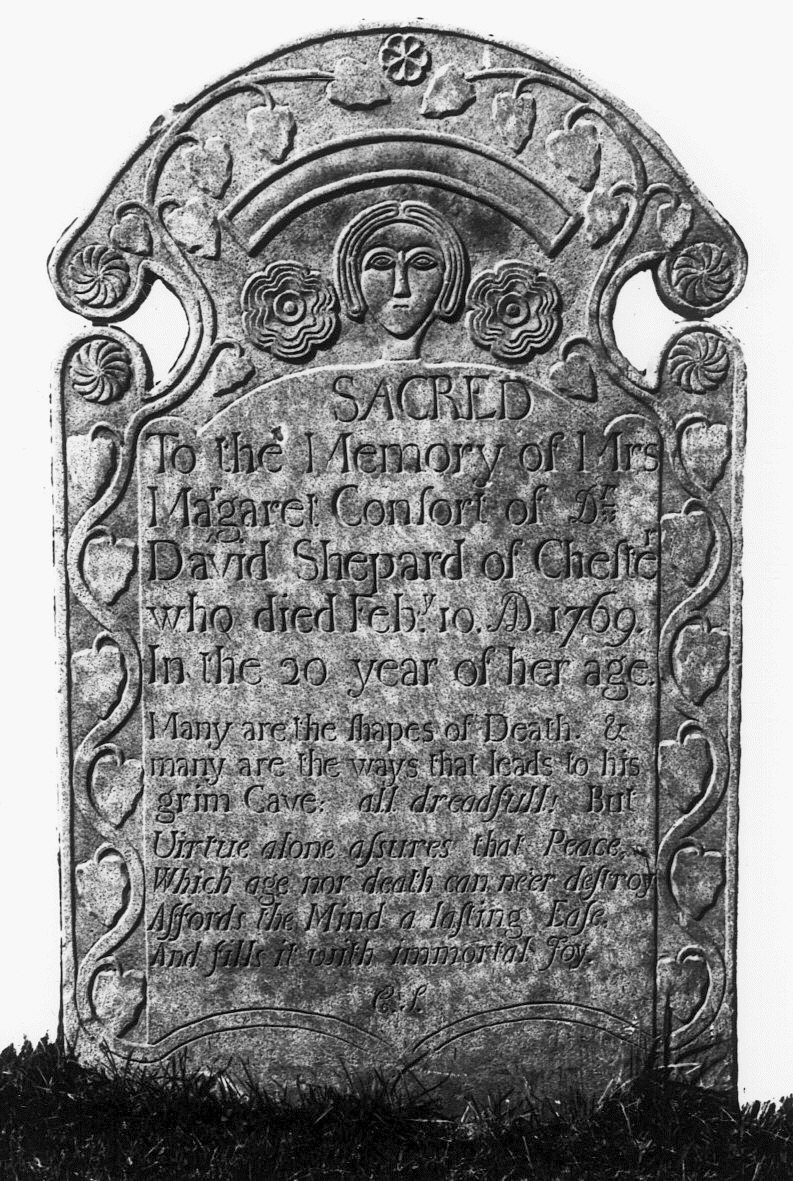 SACRED
To the Memory of Mrs
Margaret Conſort of Dr
David Shepard of Cheſter
who died Feb.y 10. AD. 1769.
In the 20 year of her age.
Many are the ſhapes of Death. &
many are the ways that leads to his
grim Cave: all dreadfull! But
Uirtue alone aſsures that Peace,
Which age nor death can ne'er deſtroy
Aſfords the Mind a laſting Eaſe.
And fills it with immortal Joy.